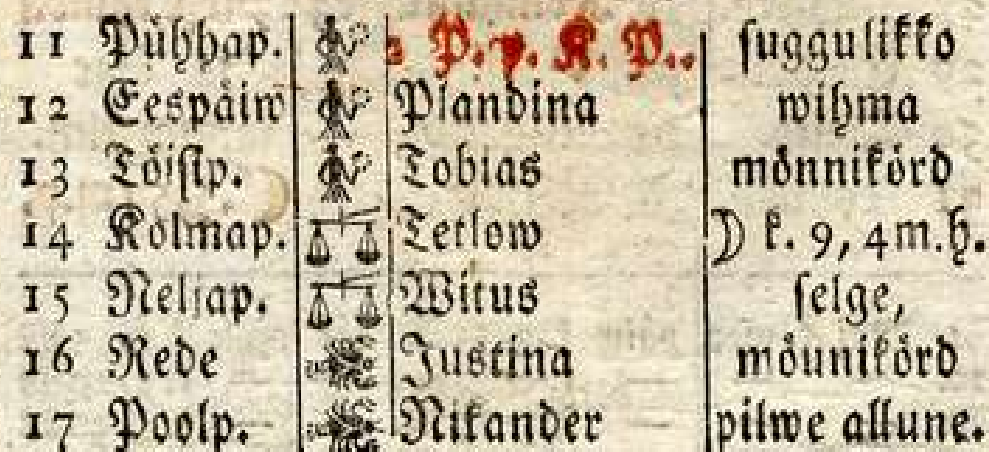 11 Pühhap. P. p. K. P.. ſuggulikko
12 Eespääiw Plandina wihma
13 Töiſip. Tobias mönnikörd
14 Kolmap. Tetlow ☽ k. 9, 4 m. h.
15 Neljap. Witus ſelge,
16 Rede Justina möunikörd
17 Poolp. Nikander pilwe allune.